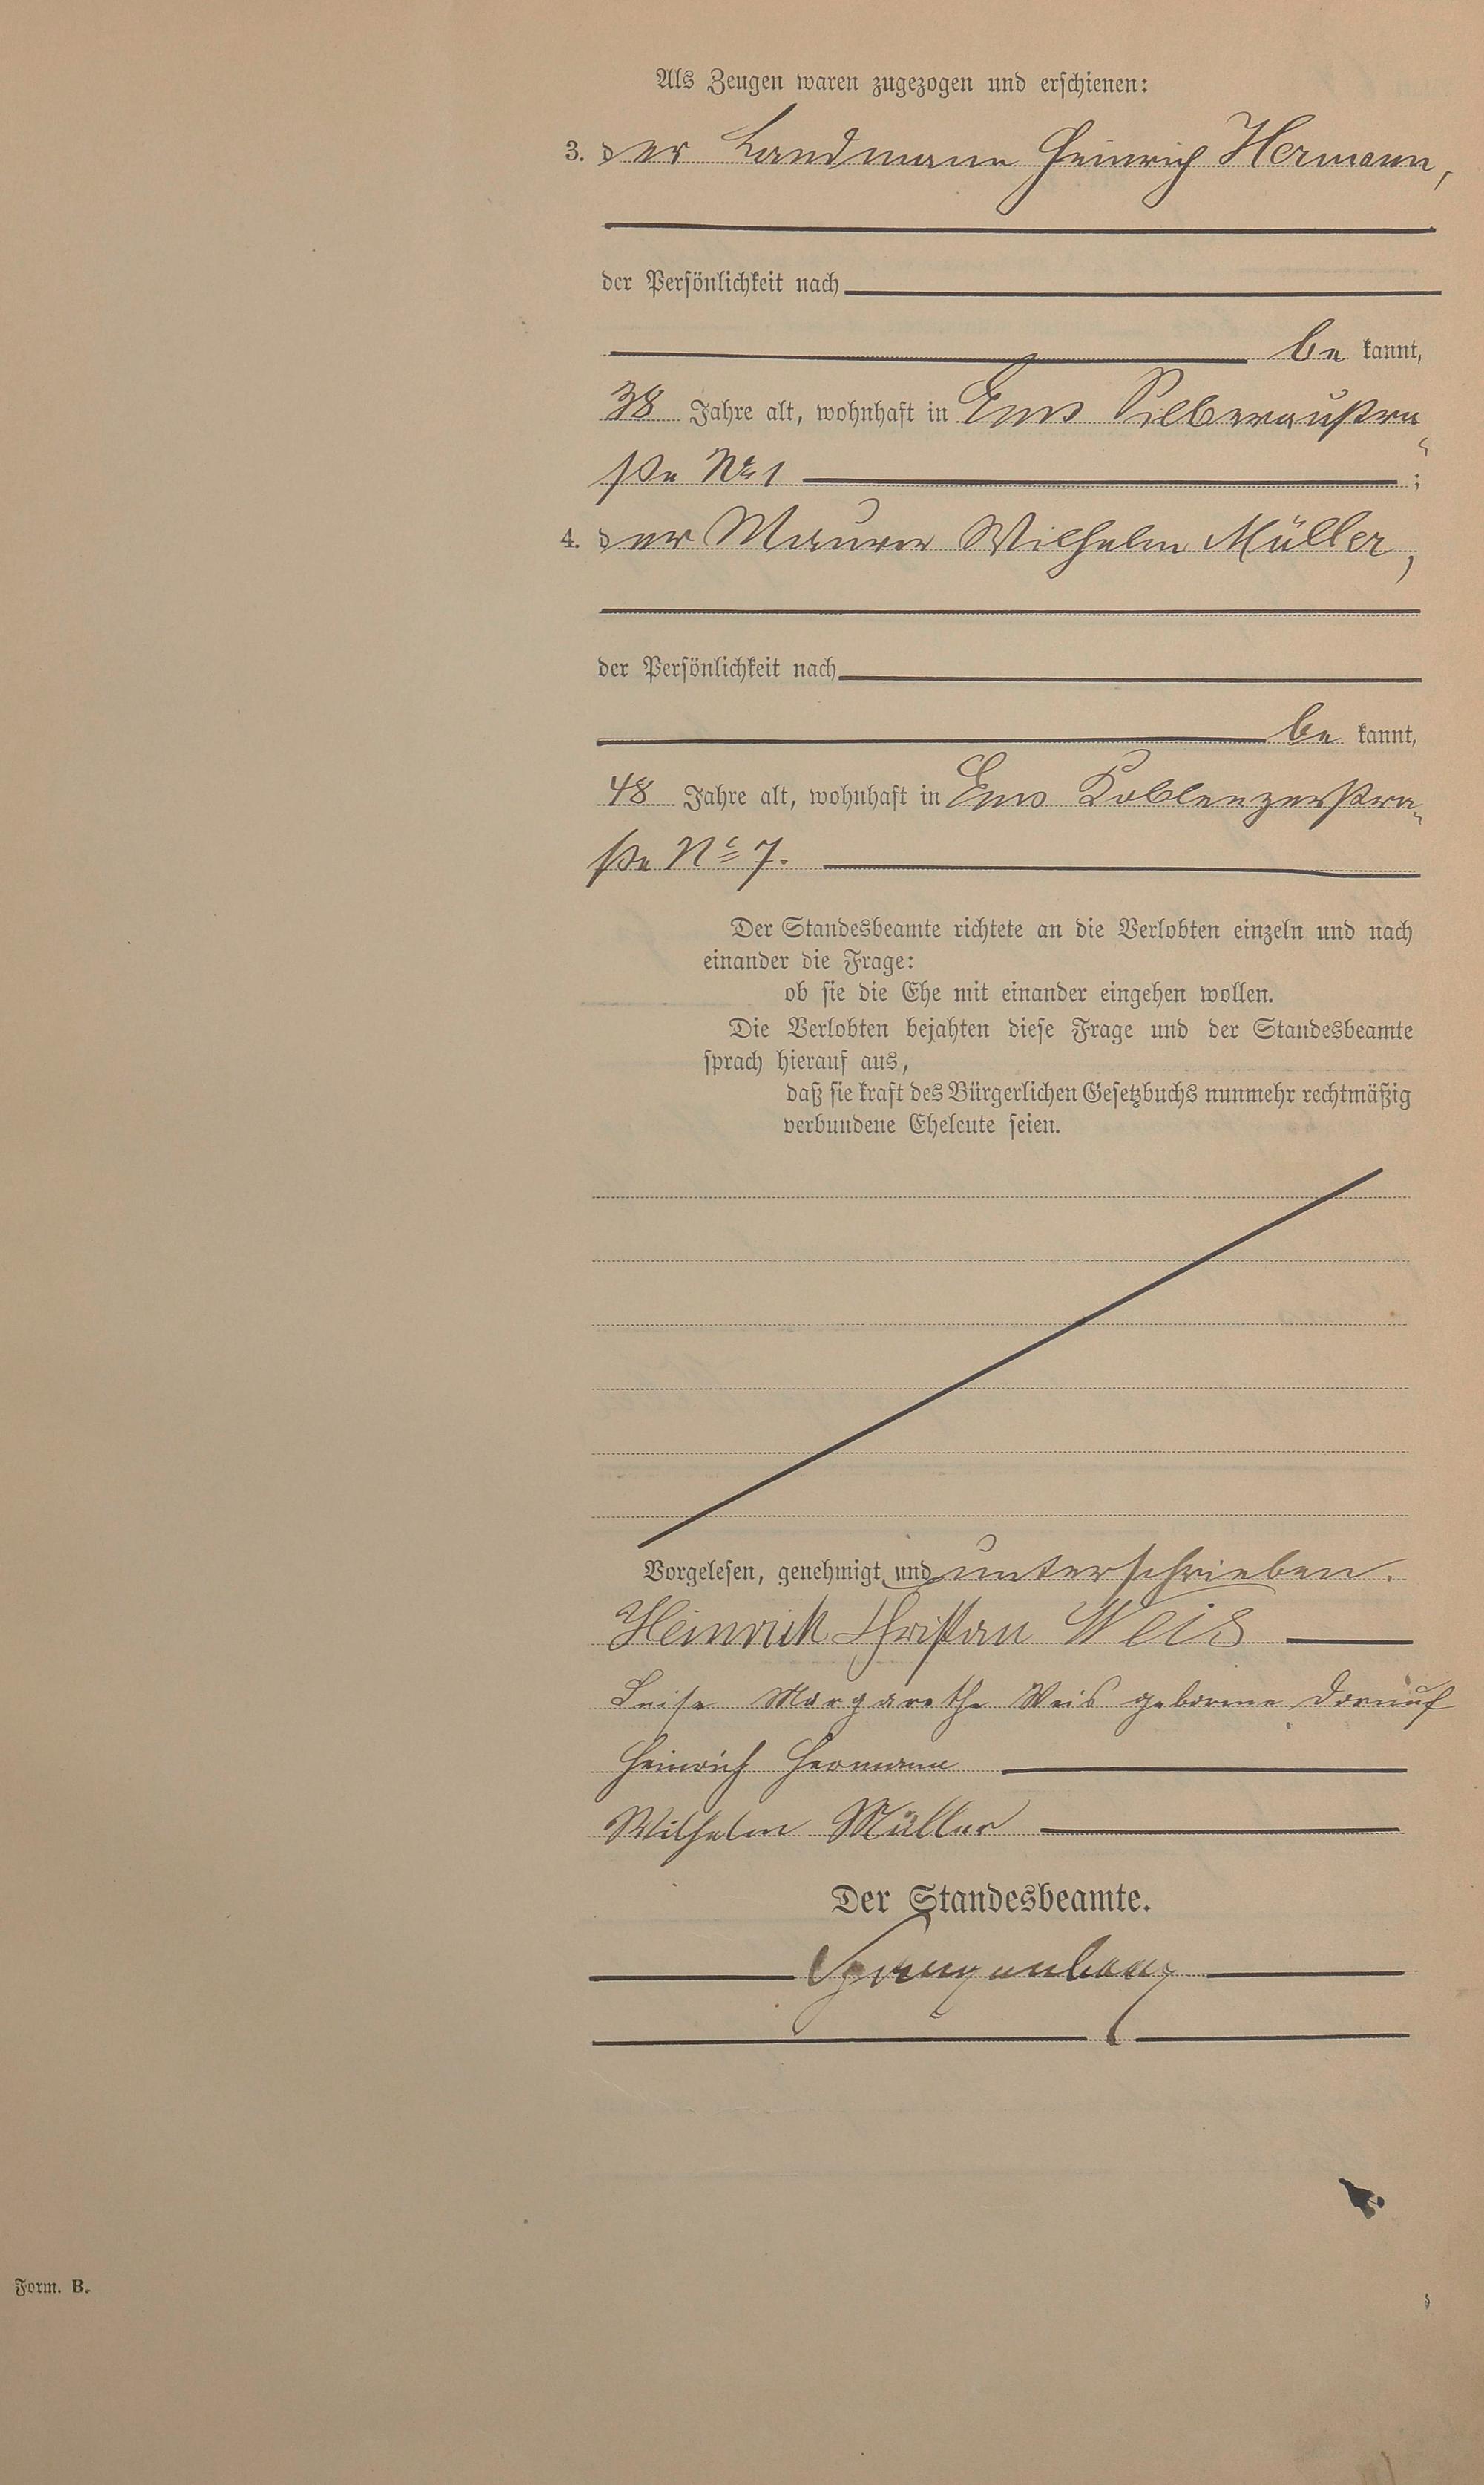 Als Zeugen waren zugezogen und erschienen:
3. der Landmann Heinrich Hermann,
der Persönlichkeit nach
be kannt,
38 Jahre alt, wohnhaft in Ems Silberaustra-
ße Nr. 1 ;
4. der Maurer Wilhelm Müller,
der Persönlichkeit nach
be kannt,
48 Jahre alt, wohnhaft in Ems Koblenzerstra-
ße No 7.
Der Standesbeamte richtete an die Verlobten einzeln und nach
einander die Frage:
ob sie die Ehe mit einander eingehen wollen.
Die Verlobten bejahten diese Frage und der Standesbeamte
sprach hierauf aus,
daß sie kraft des Bürgerlichen Gesetzbuchs nunmehr rechtmäßig
verbundene Eheleute seien.
Vorgelesen, genehmigt und unterschrieben.
Heinrich Christian Weis
Luise Margarethe Weis geborene
Heinrich Hermann
Wilhelm Müller
Der Standesbeamte.
Form. B.